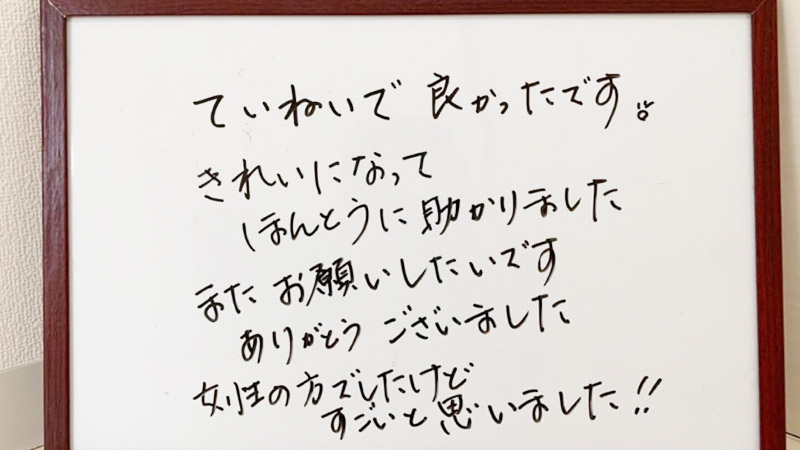 ていねいで 良かったです。
きれいになって
ほんとうに助かりました
また お願いしたいです
ありがとう ございました
女性の方でしたけど
すごいと思いました!!